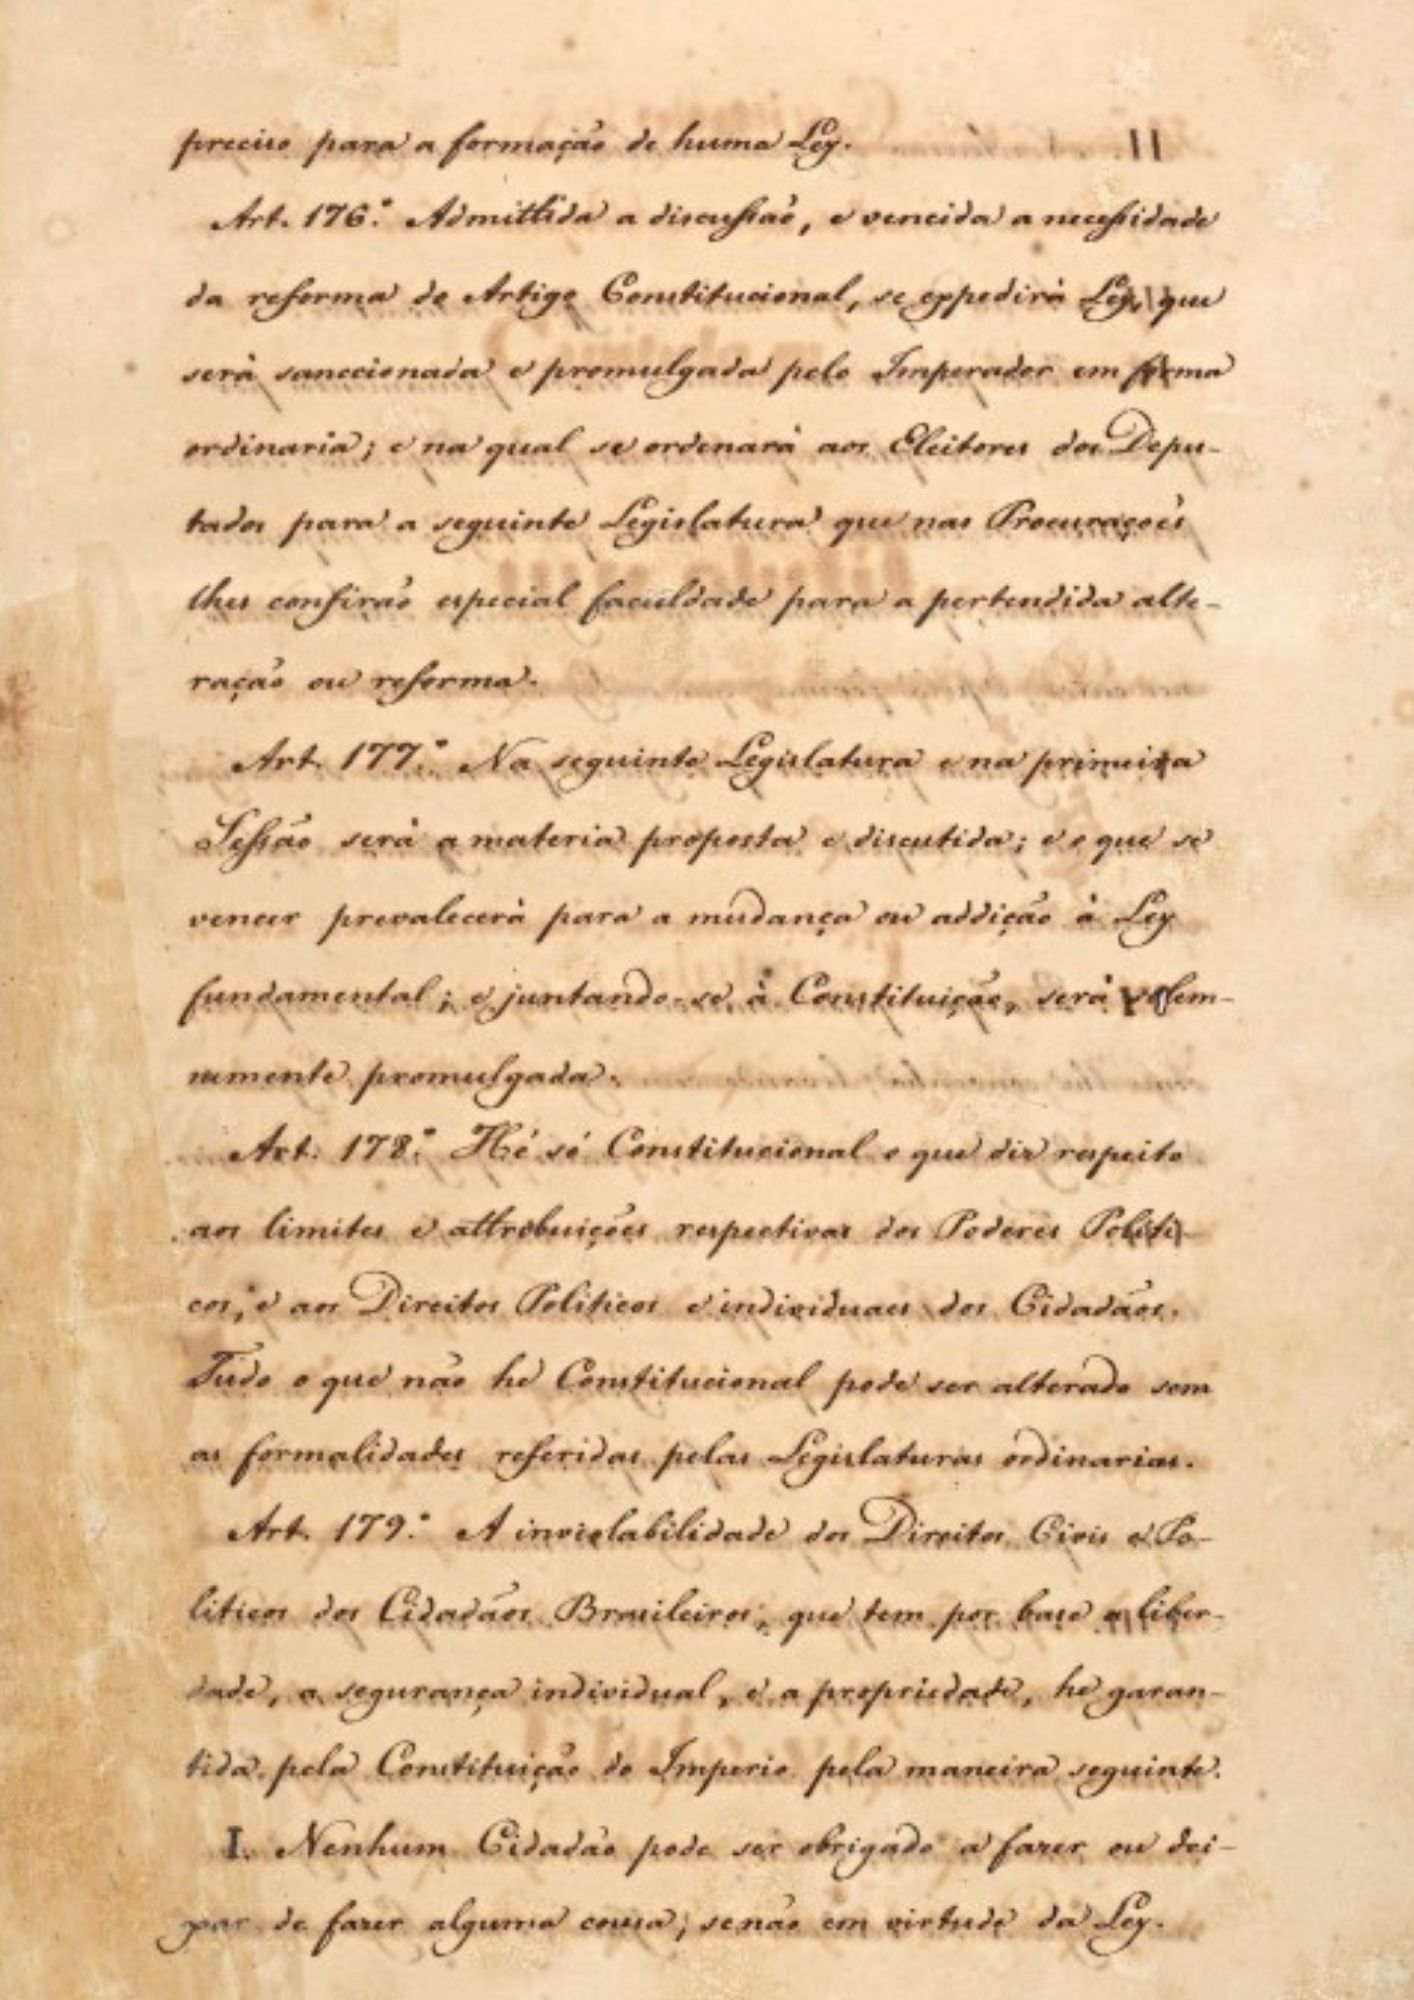 preciso para a formação de huma Ley.
Art. 176.º Admittida a discussão, e vencida a necessidade
da reforma do Artigo Constitucional, se expedirá Ley, que
será sanccionada e promulgada pelo Imperador em forma
ordinaria; e na qual se ordenará aos Eleitores dos Depu-
tados para a seguinte Legislatura que nas Procurações
lhes confirão especial faculdade para a pertendida alte-
ração ou reforma.
Art. 177.º Na seguinte Legislatura e na primeira
Sessão será a materia proposta e discutida; e o que se
vencer prevalecerá para a mudança ou addição á Ley
fundamental; e juntando-se á Constituição, será solem-
nemente promulgada.
Art. 178.º Hé só Constitucional o que diz respeito
aos limites e attribuições respectivas dos Poderes Politi-
cos, e aos Direitos Politicos e individuaes dos Cidadãos.
Tudo o que não he Constitucional pode ser alterado sem
as formalidades referidas pelas Legislaturas ordinarias.
Art. 179.º A inviolabilidade dos Direitos Civis e Po-
liticos dos Cidadãos Brasileiros, que tem por base a liber-
dade, a segurança individual, e a propriedade, he garan-
tida pela Constituição do Imperio pela maneira seguinte.
I. Nenhum Cidadão pode ser obrigado a fazer ou dei-
xar de fazer alguma cousa, senão em virtude da Ley.